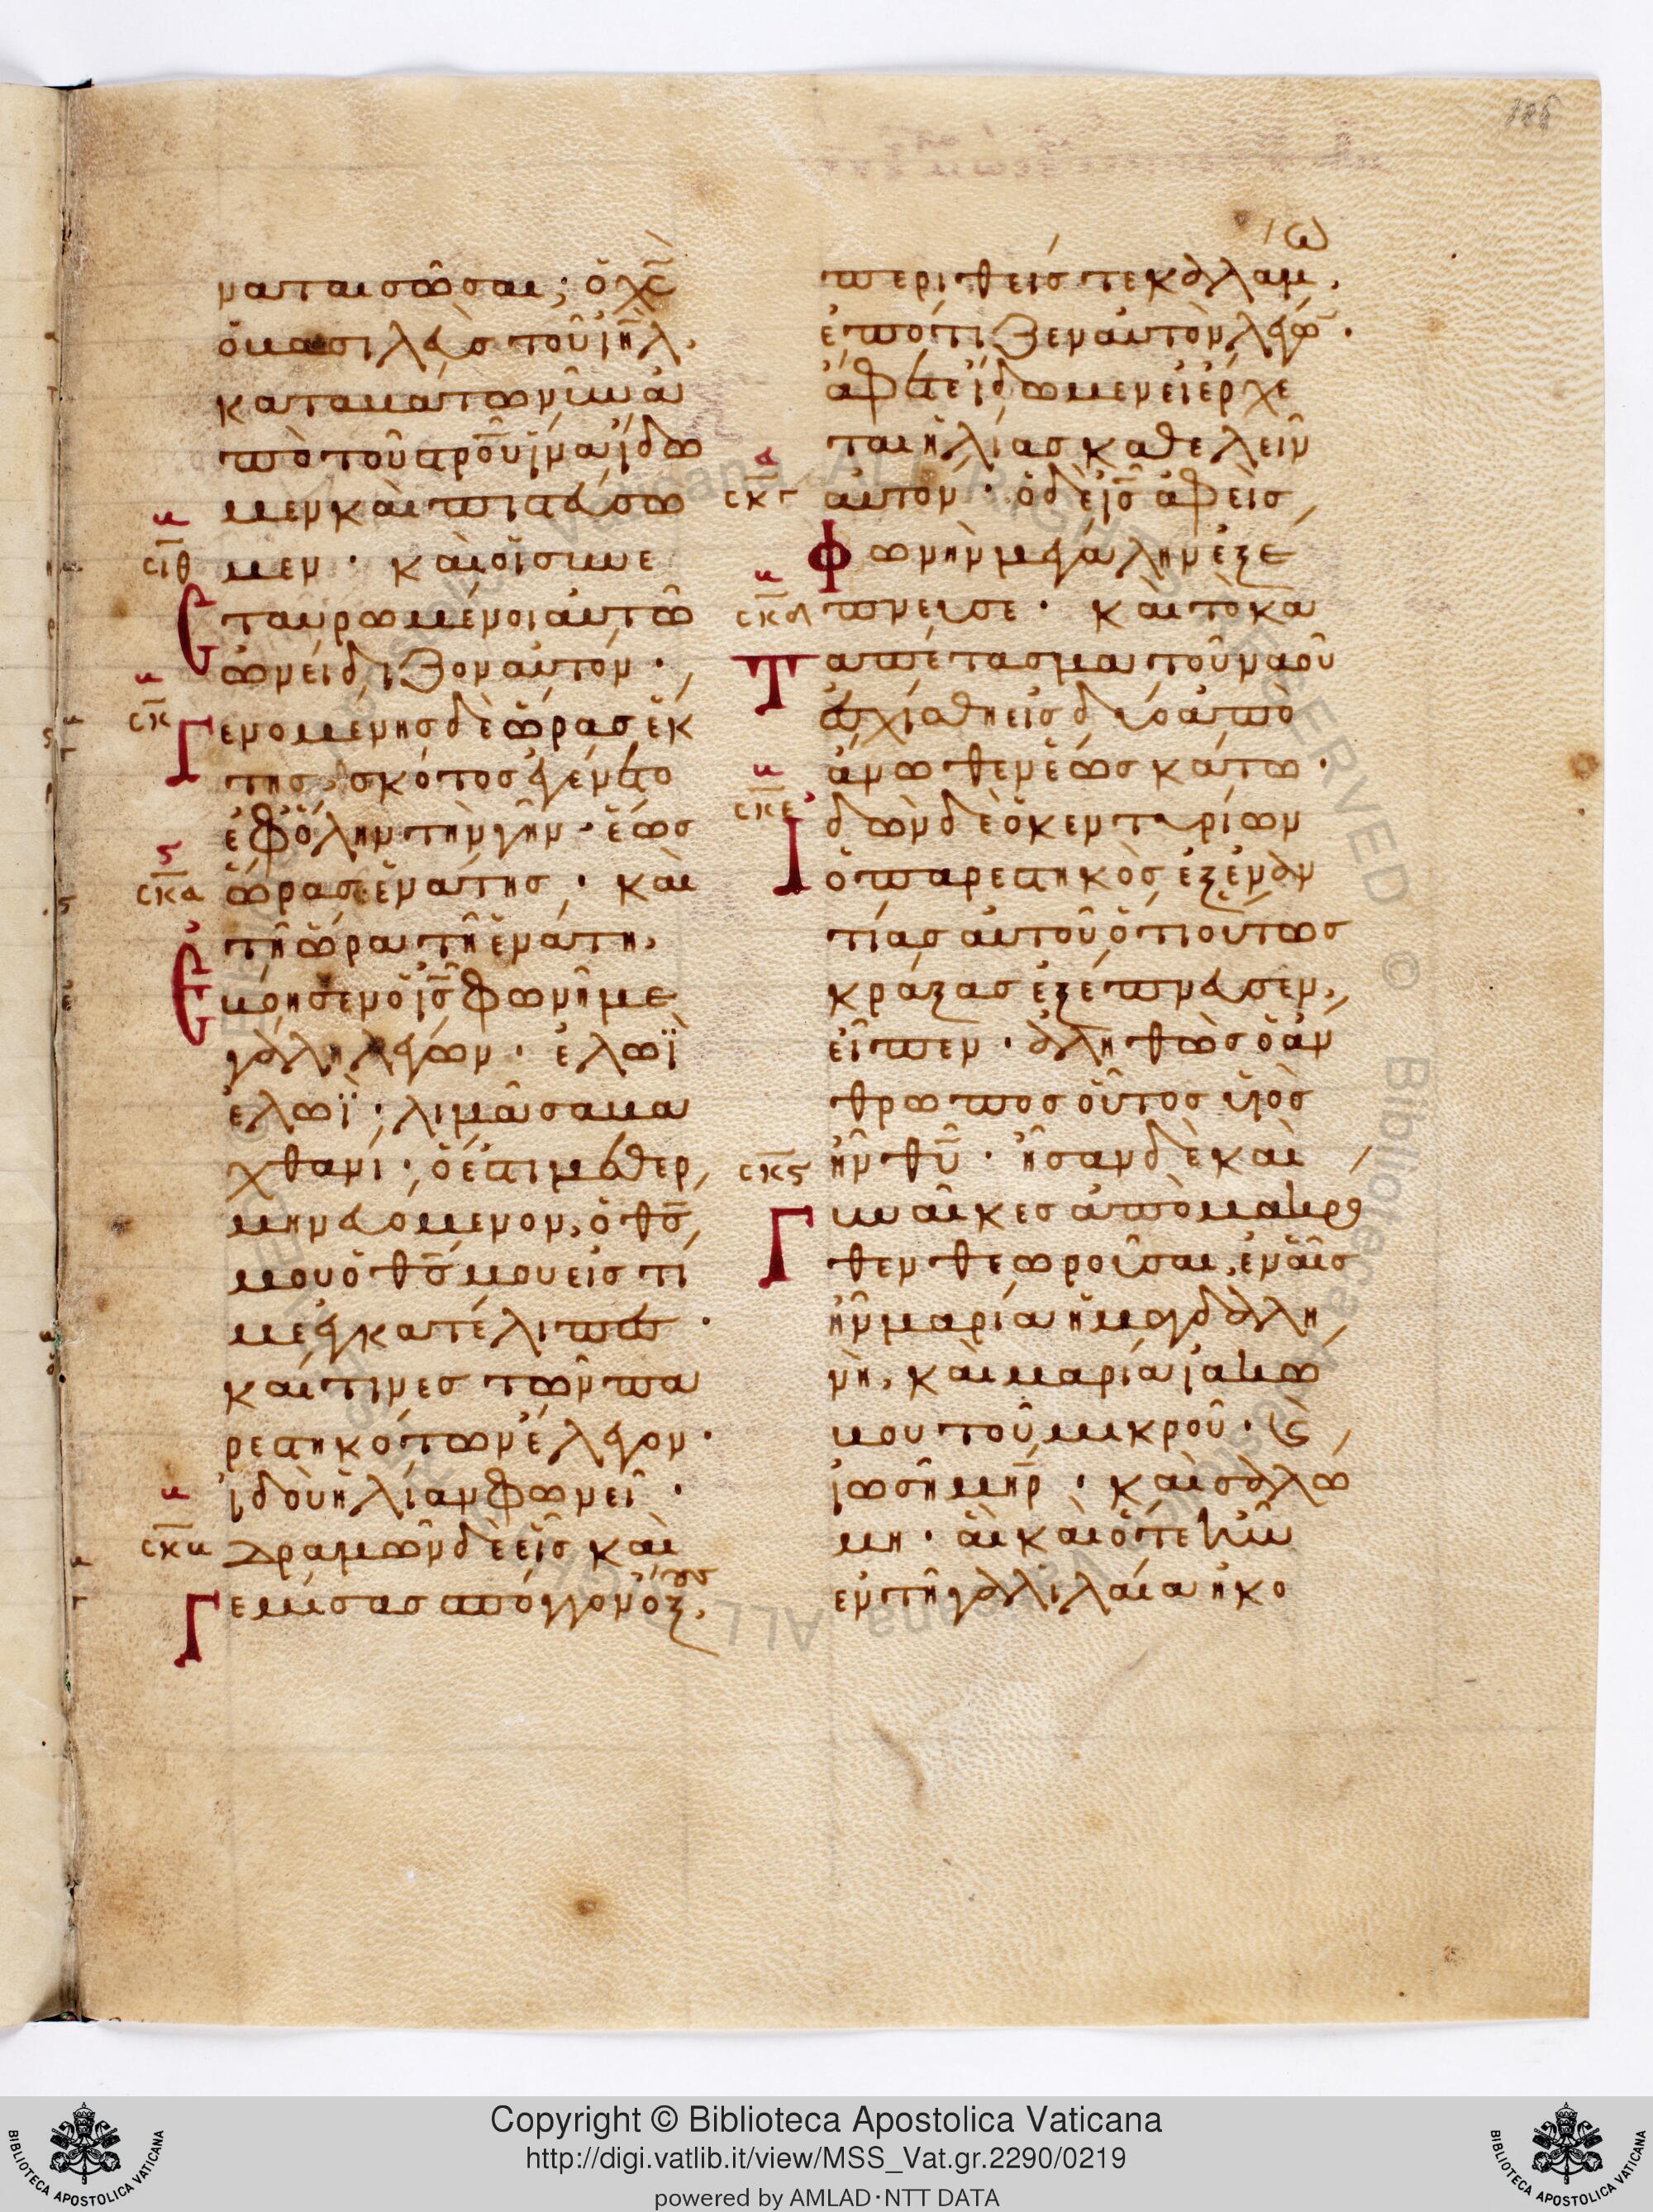 ναται σῶσαι; ὁ χ̅ς̅
ὁ βασιλεὺς τοῦ ι̅η̅λ̅.
καταβάτω νῦν ἀ
πὸ τοῦ σταυροῦ ἵνα ἴδω
μεν καὶ πιστεύσω
σιθ μεν· καὶ οἱ συνε
Σταυρωμένοι αὐτῶ
ὠνείδιζον αὐτόν·
σκ Γενομένης δὲ ὥρας ἕκ
της, σκότος ἐγένετο
ἐφ ὅλην τὴν γῆν· ἕως
σκα ὥρας ἐνάτης· καὶ
τῆ ὥρα τῆ ἐνάτη,
Ἐβόησεν ὁ ι̅ς̅ φωνῆ με
γάλη λέγων· ἐλωῒ
ἐλωῒ· λιμᾶ σαβα
χθανι· ὅ ἐστι μεθερ
μηνευόμενον, ὁ θ̅ς̅
μου ὁ θ̅ς̅ μου εἰς τί
με ἐγκατέλιπες·
καί τινες τῶν πα
ρεστηκότων ἔλεγον·
ἰδοὺ ἠλίαν φωνεῖ·
σκβ δραμὼν δὲ εἷς καὶ
Γεμίσας σπόγγον ὄξους,
περιθείς τε καλάμω,
ἐπότιζεν αὐτὸν λέγων·
ἄφετε ἴδωμεν εἰ ἔρχε
ται ἠλίας καθελεῖν
σκγ αὐτόν· ὁ δὲ ι̅ς̅ ἀφεὶς
Φωνὴν μεγάλην ἐξέ
σκδ πνευσε· καὶ τὸ κα
Ταπέτασμα τοῦ ναοῦ
ἐσχίσθη εἰς δύο ἀπὸ
ἄνωθεν ἕως κάτω·
σκε Ἰδὼν δὲ ὁ κεντυρίων
ὁ παρεστηκὼς ἐξ ἐναν
τίας αὐτοῦ ὅτι οὕτως
κράξας ἐξέπνευσεν,
εἶπεν· ἀληθῶς ὁ ἄν
θρωπος οὗτος υἱὸς
σκς ἦν θ̅υ̅· ἦσαν δὲ καὶ
Γυναῖκες ἀπὸ μακρό
θεν θεωροῦσαι, ἐν αἷς
ἦν μαρία ἡ μαγδαλη
νὴ, καὶ μαρία ἰακώ
βου τοῦ μικροῦ· καὶ
ἰωσῆ μ̅η̅ρ̅· καὶ σαλώ
μη· αἳ καὶ ὅτε ἦν
ἐν τῆ γαλιλαία ἠκο
Copyright © Biblioteca Apostolica Vaticana
http://digi.vatlib.it/view/MSS_Vat.gr.2290/0219
powered by AMLAD·NTT DATA